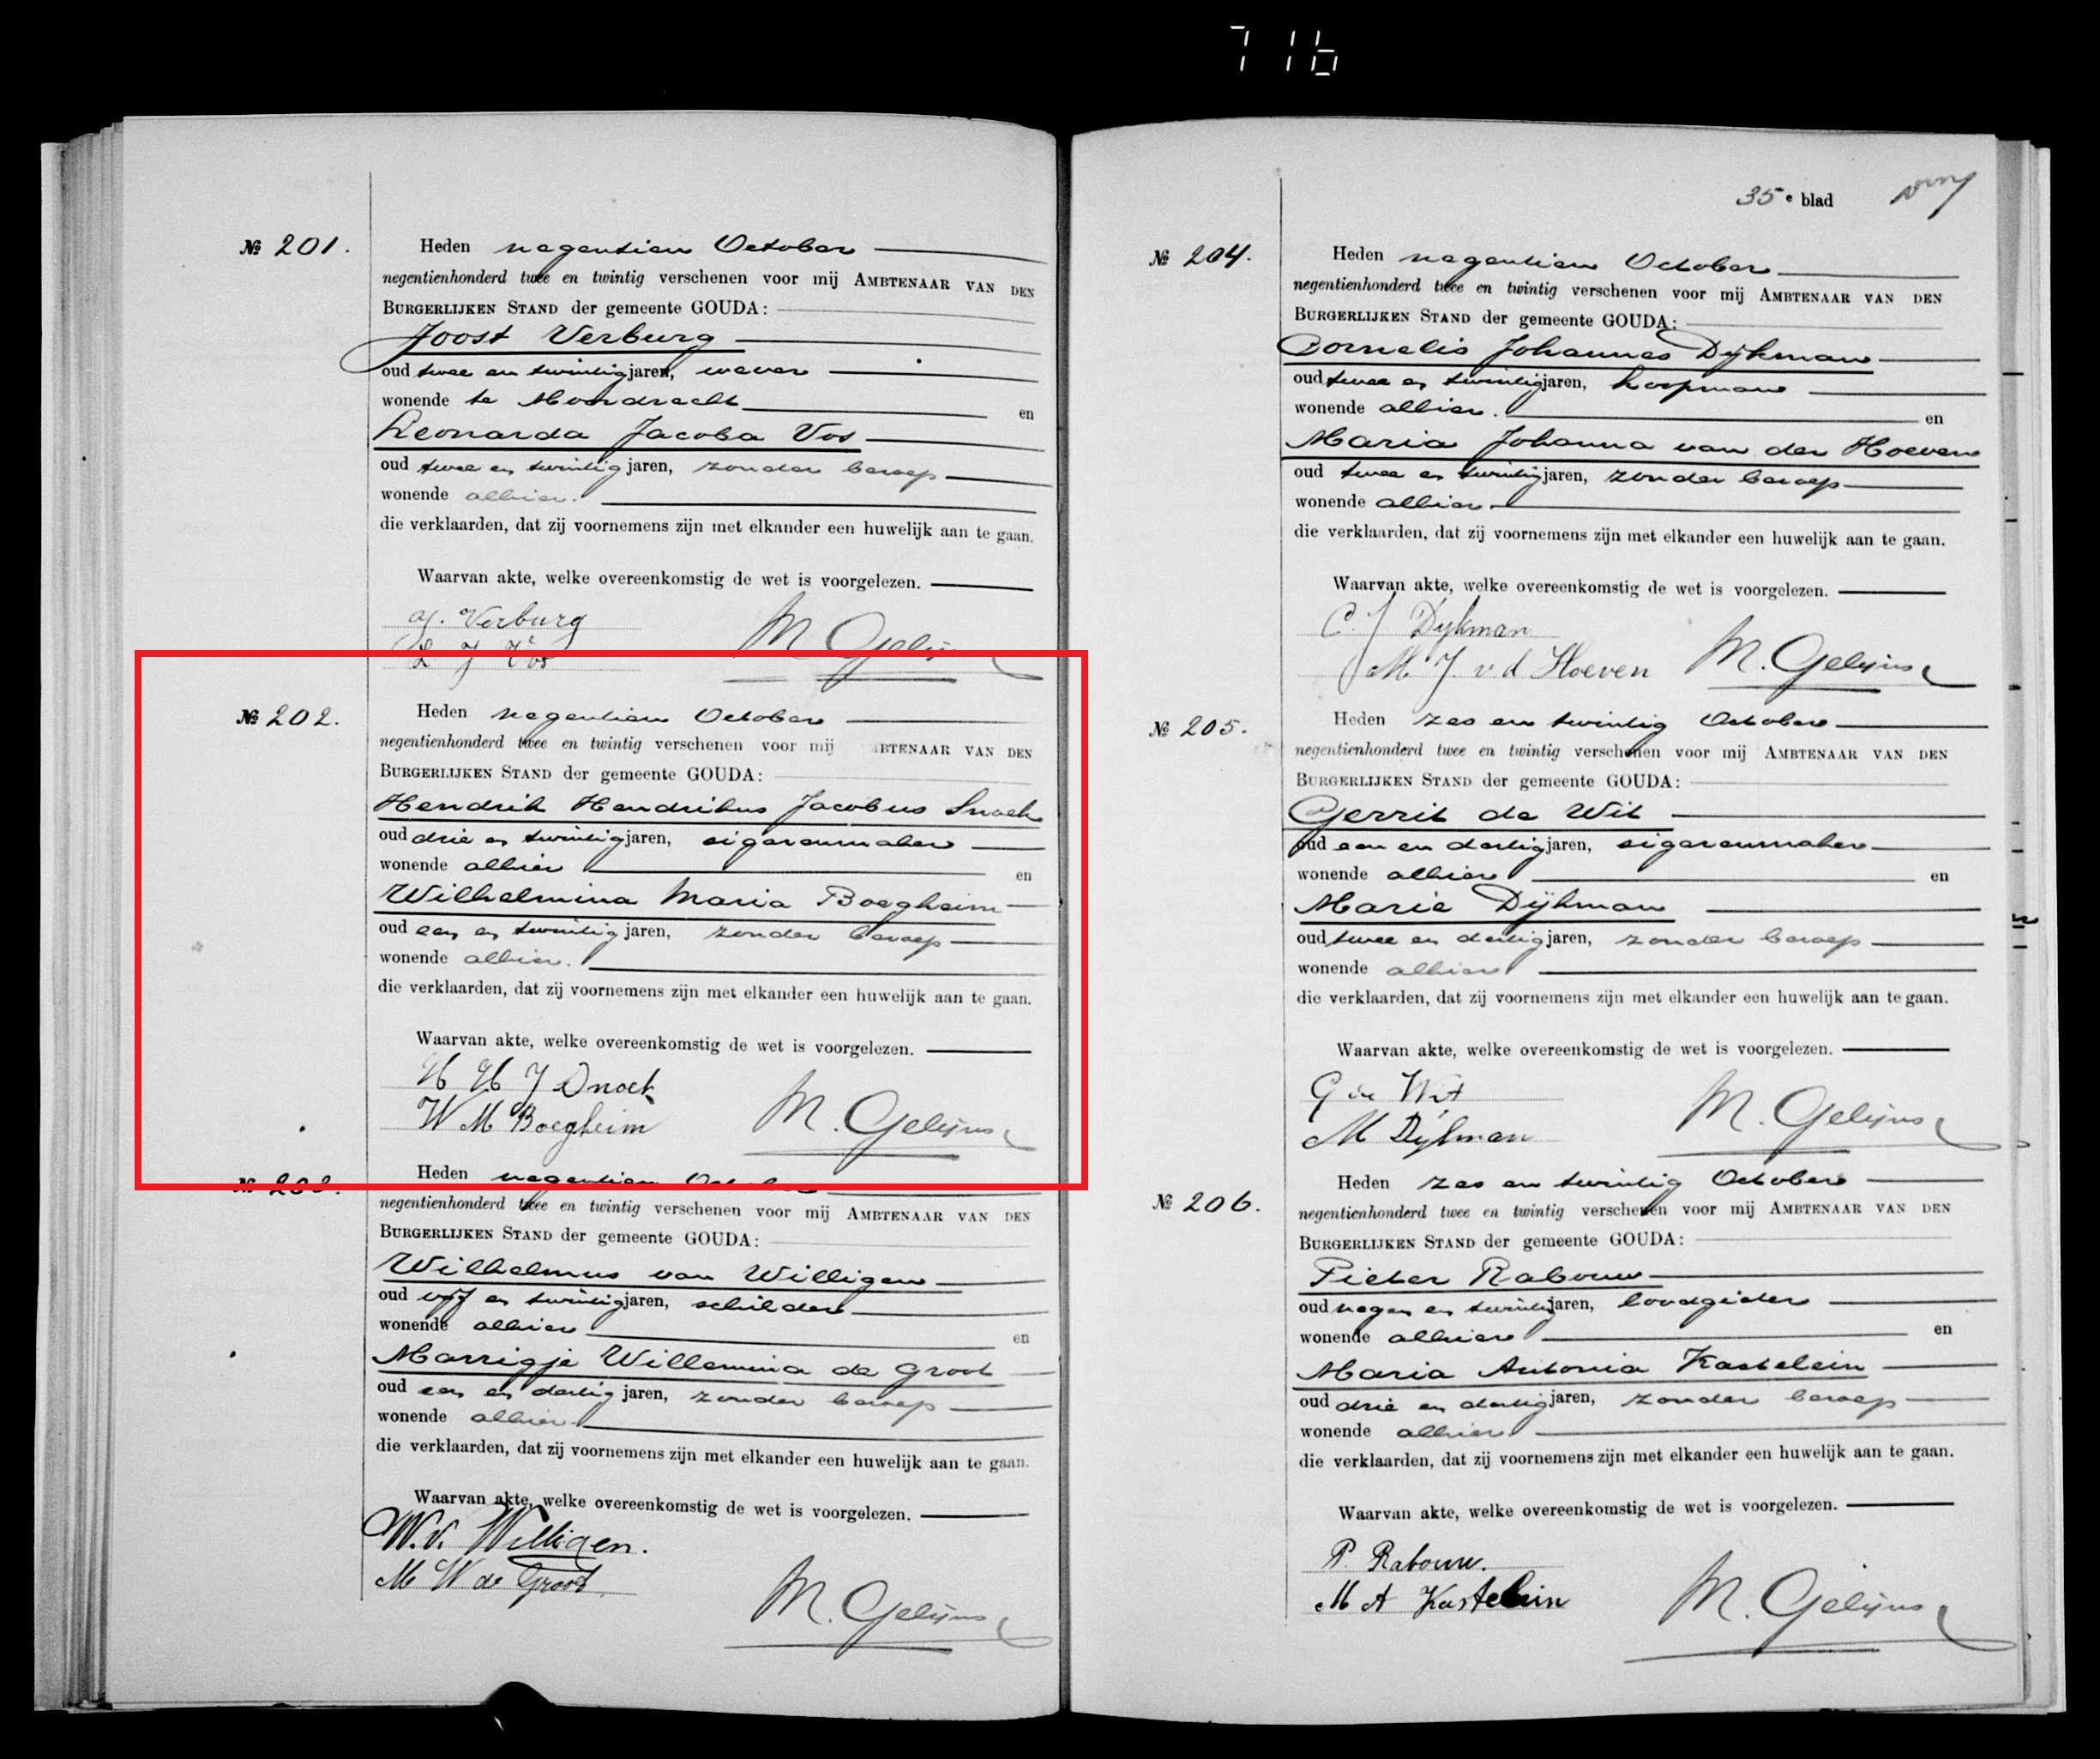 716
№ 201.
Heden negentien October
negentienhonderd twee en twintig verschenen voor mij AMBTENAAR VAN DEN
BURGERLIJKEN STAND der gemeente GOUDA:
Joost Verburg
oud twee en twintig jaren, wever
wonende te Moordrecht en
Leonarda Jacoba Vos
oud twee en twintig jaren, zonder beroep
wonende alhier.
die verklaarden, dat zij voornemens zijn met elkander een huwelijk aan te gaan.
Waarvan akte, welke overeenkomstig de wet is voorgelezen.
J. Verburg
L J Vos M Gelijns
№ 202.
Heden negentien October
negentienhonderd twee en twintig verschenen voor mij BTENAAR VAN DEN
BURGERLIJKEN STAND der gemeente GOUDA:
Hendrik Hendrikus Jacobus Snoek
oud drie en twintig jaren, sigarenmaker
wonende alhier en
Wilhelmina Maria Boegheim
oud een en twintig jaren, zonder beroep
wonende alhier.
die verklaarden, dat zij voornemens zijn met elkander een huwelijk aan te gaan.
Waarvan akte, welke overeenkomstig de wet is voorgelezen.
H H J Snoek
W M Boegheim M. Gelijns
№ 203.
Heden negentien October
negentienhonderd twee en twintig verschenen voor mij AMBTENAAR VAN DEN
BURGERLIJKEN STAND der gemeente GOUDA:
Wilhelmus van Willigen
oud vijf en twintig jaren, schilder
wonende alhier en
Marrigje Willemina de Groot
oud een en dertig jaren, zonder beroep
wonende alhier
die verklaarden, dat zij voornemens zijn met elkander een huwelijk aan te gaan.
Waarvan akte, welke overeenkomstig de wet is voorgelezen.
W. v. Willigen.
M W de Groot M. Gelijns
35e blad
№ 204.
Heden negentien October
negentienhonderd twee en twintig verschenen voor mij AMBTENAAR VAN DEN
BURGERLIJKEN STAND der gemeente GOUDA:
Cornelis Johannes Dijkman
oud twee en twintig jaren, koopman
wonende alhier. en
Maria Johanna van der Hoeven
oud twee en twintig jaren, zonder beroep
wonende alhier
die verklaarden, dat zij voornemens zijn met elkander een huwelijk aan te gaan.
Waarvan akte, welke overeenkomstig de wet is voorgelezen.
C. J Dijkman
M J. v d Hoeven M. Gelijns
№ 205.
Heden zes en twintig October
negentienhonderd twee en twintig verschenen voor mij AMBTENAAR VAN DEN
BURGERLIJKEN STAND der gemeente GOUDA:
Gerrit de Wit
oud een en dertig jaren, sigarenmaker
wonende alhier en
Marie Dijkman
oud twee en dertig jaren, zonder beroep
wonende alhier
die verklaarden, dat zij voornemens zijn met elkander een huwelijk aan te gaan.
Waarvan akte, welke overeenkomstig de wet is voorgelezen.
G de Wit
M Dijkman M. Gelijns
№ 206.
Heden zes en twintig October
negentienhonderd twee en twintig verschenen voor mij AMBTENAAR VAN DEN
BURGERLIJKEN STAND der gemeente GOUDA:
Pieter Rabouw
oud negen en twintig jaren, loodgieter
wonende alhier en
Maria Antonia Kastelein
oud drie en dertig jaren, zonder beroep
wonende alhier
die verklaarden, dat zij voornemens zijn met elkander een huwelijk aan te gaan.
Waarvan akte, welke overeenkomstig de wet is voorgelezen.
P. Rabouw.
M A Kastelein M. Gelijns